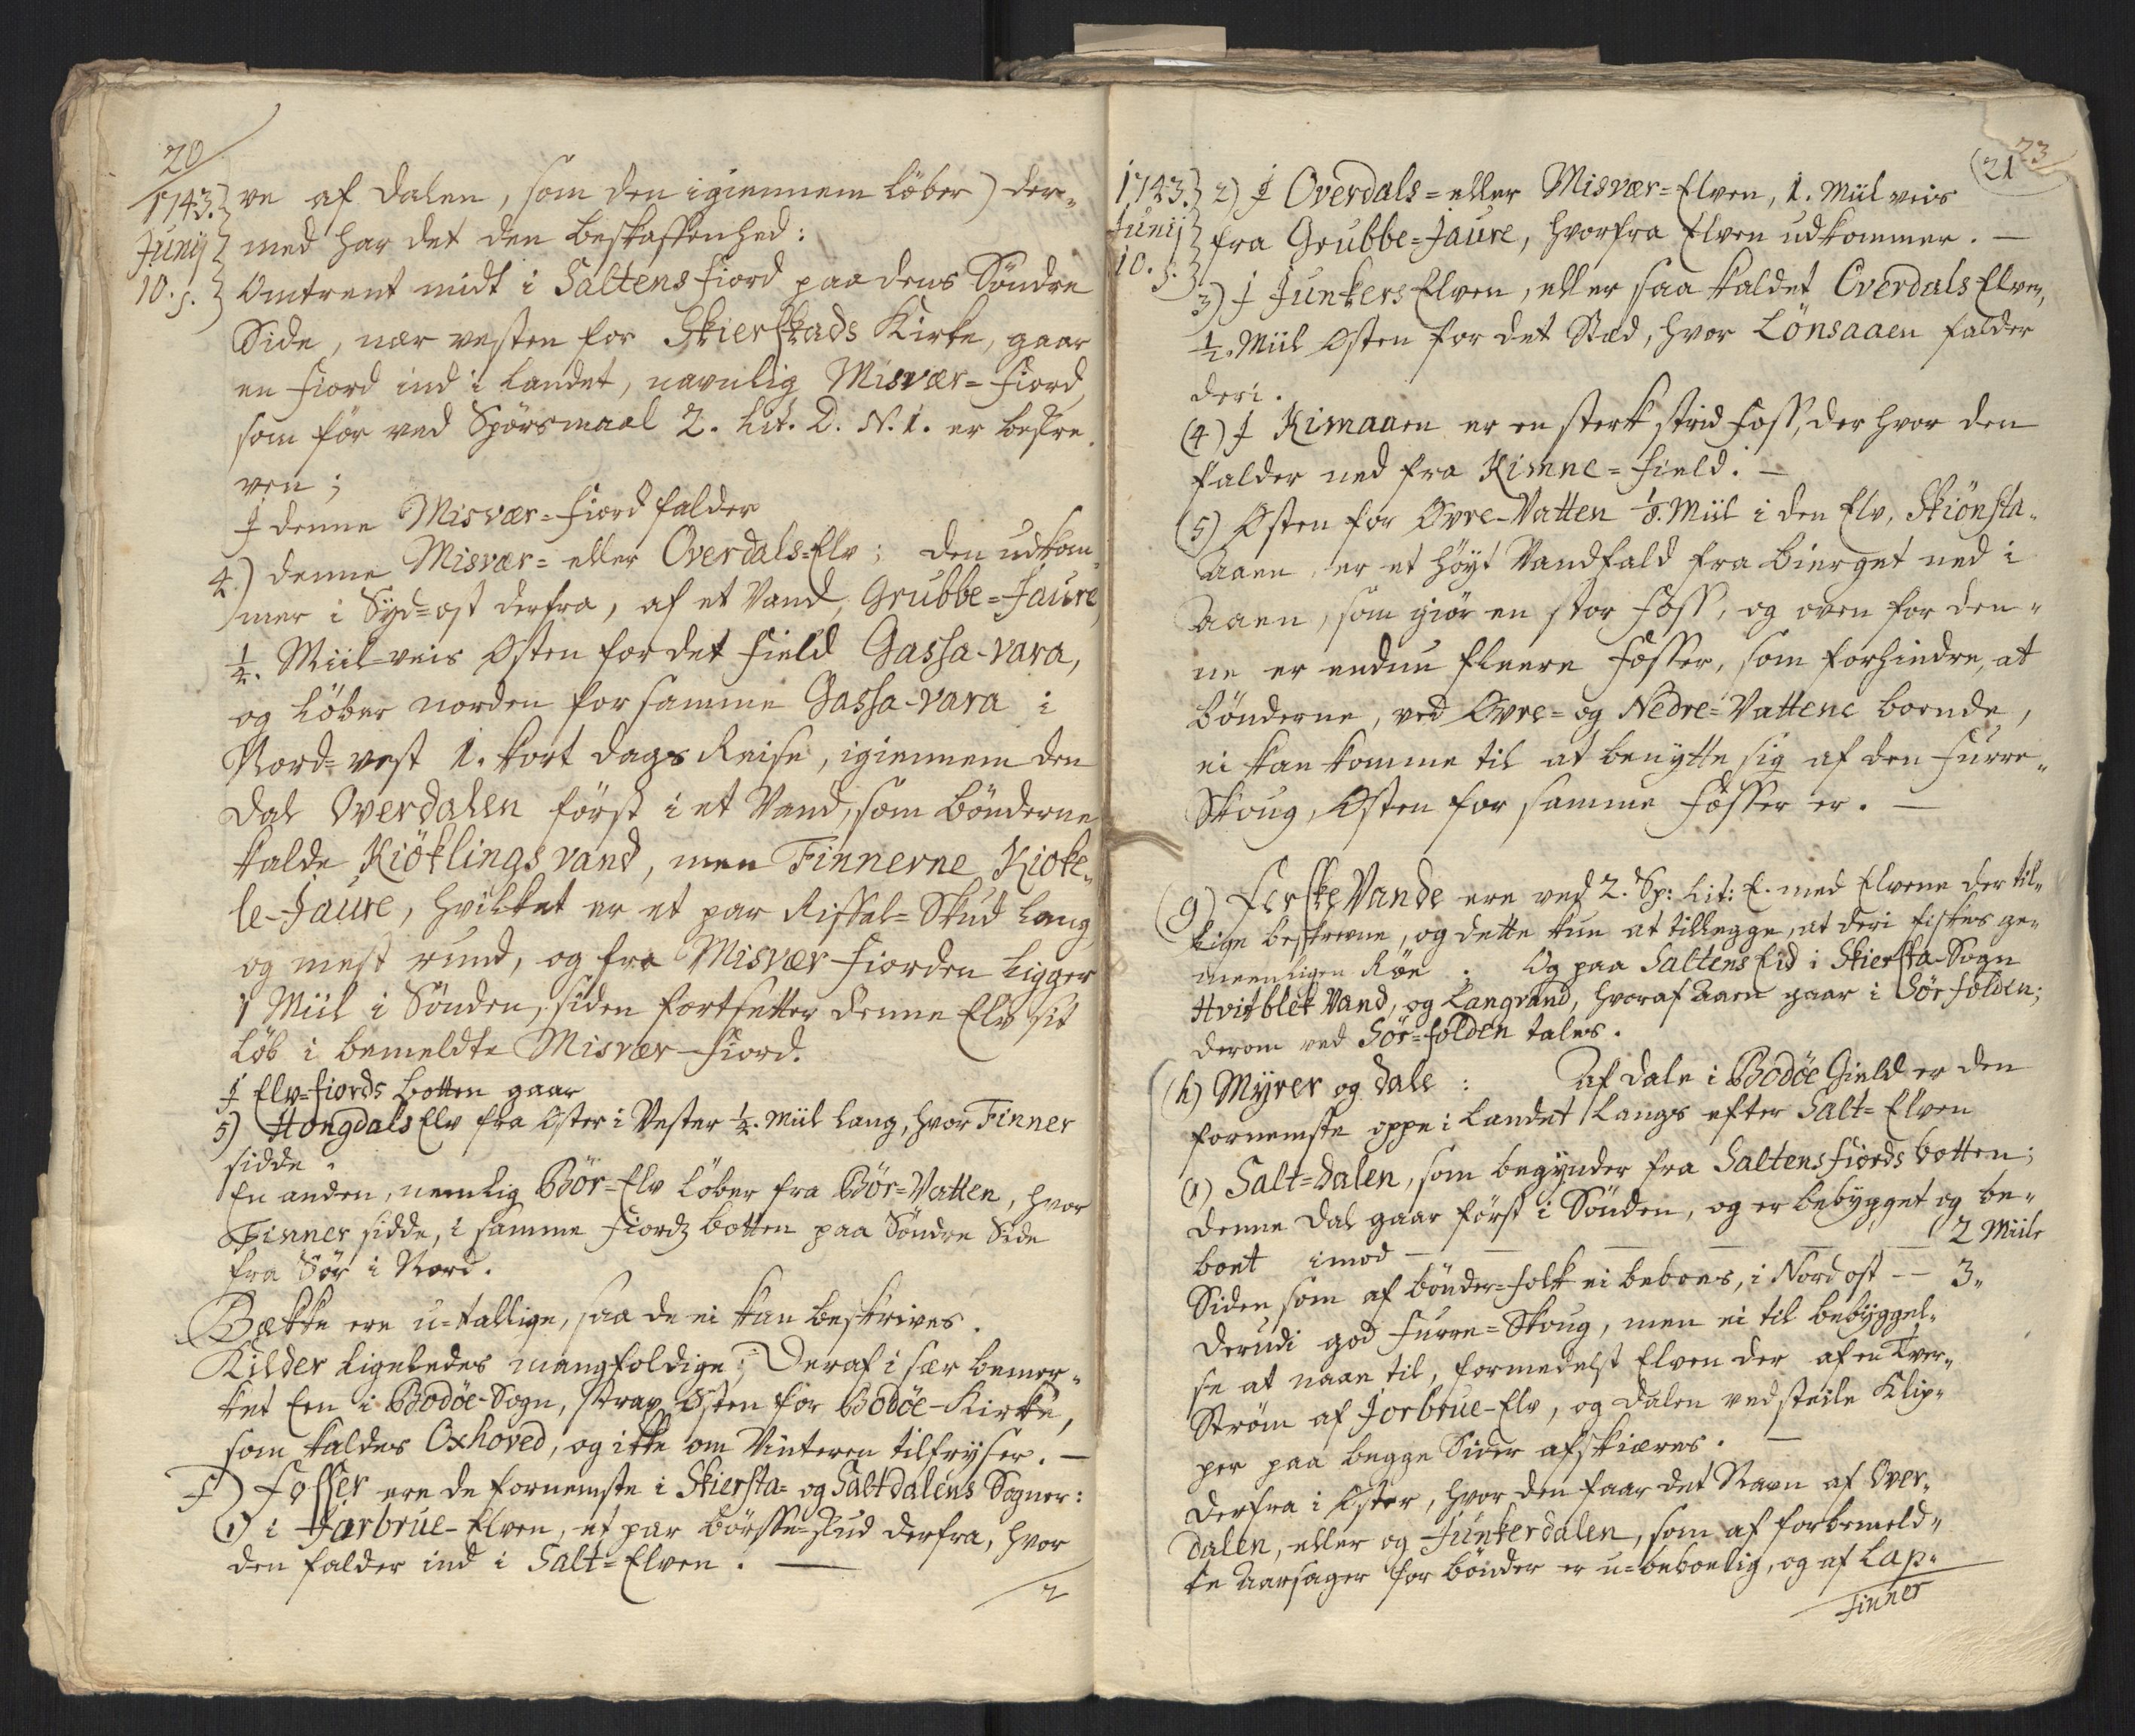 20
1743.
Junij
10. s.
ve af dalen, som den igiennem löber) der-
med har det den beskaffenhed:
Omtrent midt i Saltensfiord paa dens Söndre
Side, nær vesten for Skierstads Kirke, gaar
en fiord ind i landet, navnlig Misvær=fiord,
som før ved Spörsmaal 2. Lit. D. N. 1. er beskre
ven;
I denne Misvær=fiord falder
4) denne Misvær= eller Overdals=Elv; den udkom-
mer i Syd=ost derfra, af et Vand, Grubbe=Jaure,
1/2. Miil=veis Østen for det field Gassa-vara,
og löber norden for samme Gassa-vara i
Nord=vest 1. kort dags Reise, igiennem den
dal Overdalen först i et Vand, som bönderne
kalde Kiöklingsvand, men Finnerne Kioke-
le-Jaure, hvilket er et par Riffel=Skud lang,
og mest rund, og fra Misvær-fiorden ligger
1 Miil i Sönden, siden fortsetter denne Elv sit
löb i bemeldte Misvær-fiord.
I Elv=fiords botten gaar
5) Hongdals Elv fra Øster i Vester 1/2. Miil lang, hvor Finner
sidde.
En anden, nemlig Bör=Elv löber fra Bör=Vatten, hvor
Finner sidde, i samme fiords botten paa Söndre Side
fra Sör i Nord.
Bække ere u=tallige, saa de ei kan beskrives.
Kilder ligeledes mangfoldige; Deraf i sær bemer-
ket Een i Bodöe-Sogn, strax Østen for Bodöe-Kirke,
som kaldes Oxhoved, og ikke om Vinteren tilfryser. —
f) Fosser ere de fornemste i Skiersta= og Saltdalens Sogner:
(1) i Jarbrue-Elven, et par börsse=skud derfra, hvor
den falder ind i Salt=Elven. —
2
23
(21
1743.
Junij
10. s.
2) I Overdals= eller Misvær=Elven, 1. Miil veis
fra Grubbe=Jaure, hvorfra Elven udkommer. —
3) I Junkers Elven, eller saa kaldet Overdals Elven,
1/2. Miil Østen for det Sted, hvor Lönsaaen falder
deri.
(4) I Kimaaen er en sterk strid foss, der hvor den
falder ned fra Kimne=field. —
(5) Østen for Øvre-Vatten 1/8. Miil i den Elv, Skiönsta-
Aaen, er et höyt Vandfald fra bierget ned i
Aaen, som giör en stor foss, og oven for den-
ne er endnu fleere fosser, som forhindre, at
bönderne, ved Øvre= og Nedre=Vattene boende,
ei kan komme til at benytte sig af den furre-
Skoug, Østen for samme fosser er. —
(g) Ferske Vande ere ved 2. Sp: Lit: E. med Elvene der til-
lige beskrevne, og dette kun at tillegge, at deri fiskes ge-
meenligen Röe. Og paa Saltens Eid i Skiersta-Sogn
Hvitblik Vand, og Langvand, hvoraf Aaen gaar i Sörfolden;
derom ved Sör=folden tales.
(h) Myrer og dale: Af dale i Bodöe Gield er den
fornemste oppe i landet langs efter Salt=Elven
(1) Salt=dalen, som begynder fra Saltensfiords botten;
denne dal gaar först i Sönden, og er bebygget og be-
boet imod — — — — — 2 Miile
Siden, som af bönder=folk ei beboes, i Nord ost — — 3„
derudi god furre=Skoug, men ei til bebyggel-
se at naae til, formedelst Elven der af en Tver-
Ström af Jorbrue-Elv, og dalen ved steile Klip-
per paa begge Sider afskiæres. —
derfra i Øster, hvor den faar det Navn af Over-
dalen, eller og Junkerdalen, som af forbemeld-
te Aarsager for bönder er u=beboelig, og af Lap-
Finner